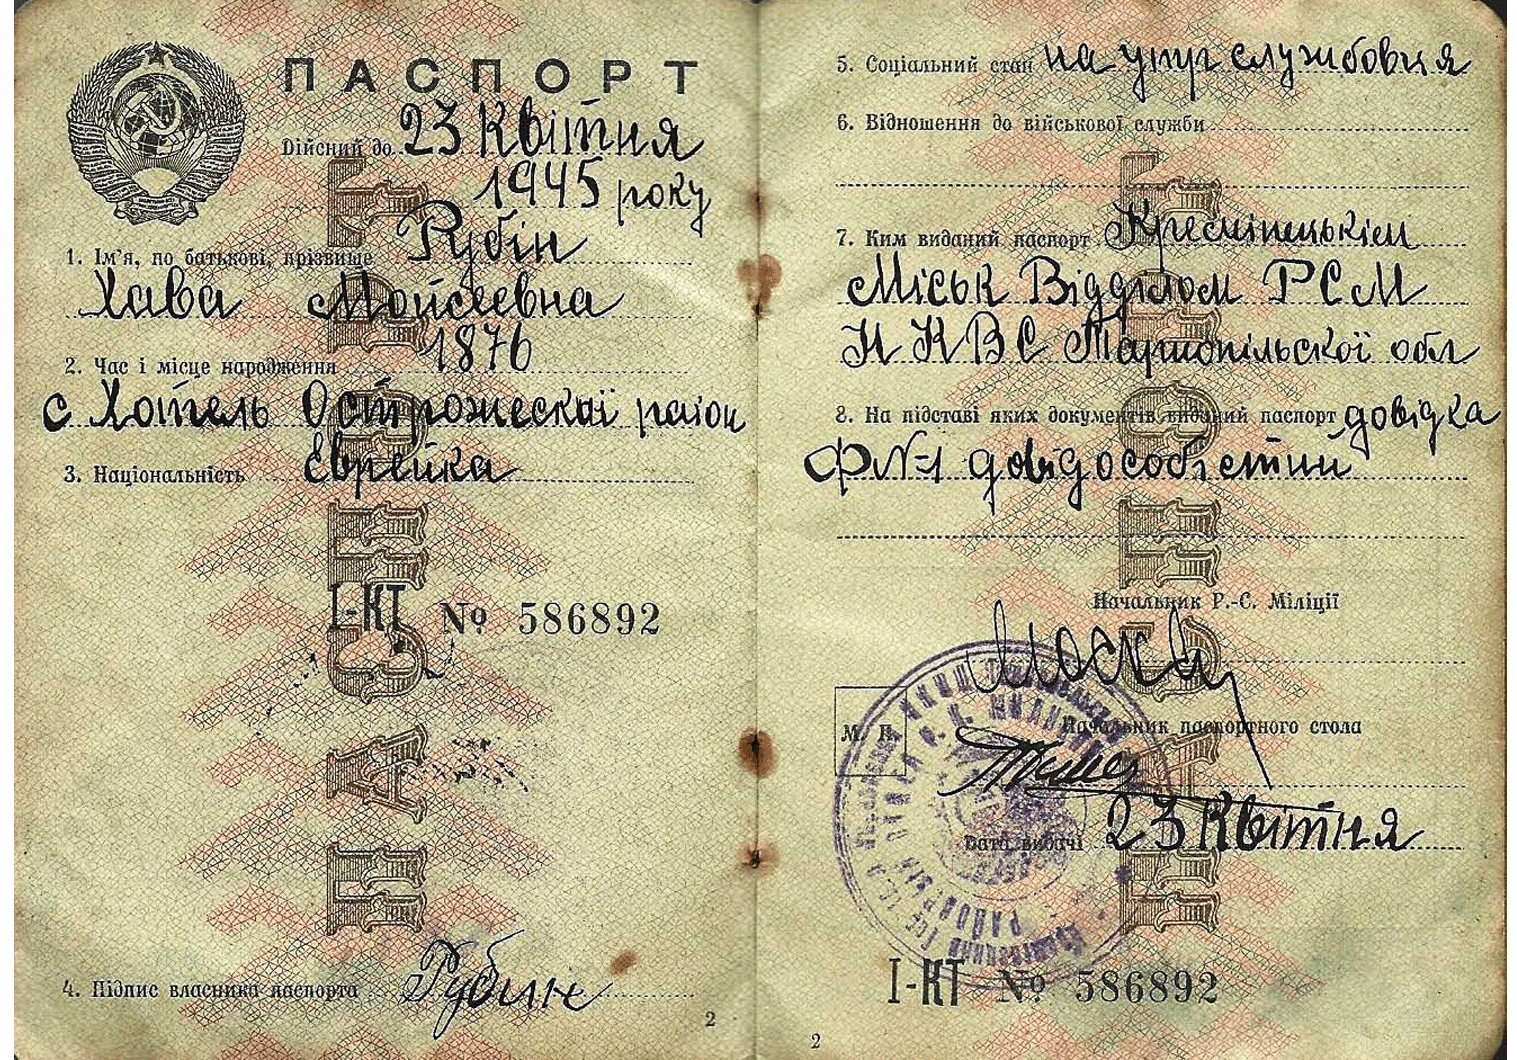 ПАСПОРТ
Дійсний до 23 Квітня
1945 року
1. Ім'я, по батькові, прізвище Рубін
Хава Мойсеевна
2. Час і місце народження 1876
с Хотель Острожескаї район
3. Національність Еврейка
І-КТ № 586892
4. Підпис власника паспорта Рубин
2
5. Соціальний стан на утр службовця
6. Відношення до військової служби
7. Ким виданий паспорт Кремінецькієм
Міськ Відділом РСМ
НКВС Тарнопільскої обл
8. На підставі яких документів виданий паспорт довідка
ФN-1
Начальник Р.-С. Міліції
М. П.
Начальник паспортного стола
Дата видачі 23 Квітня
І-КТ № 586892
2